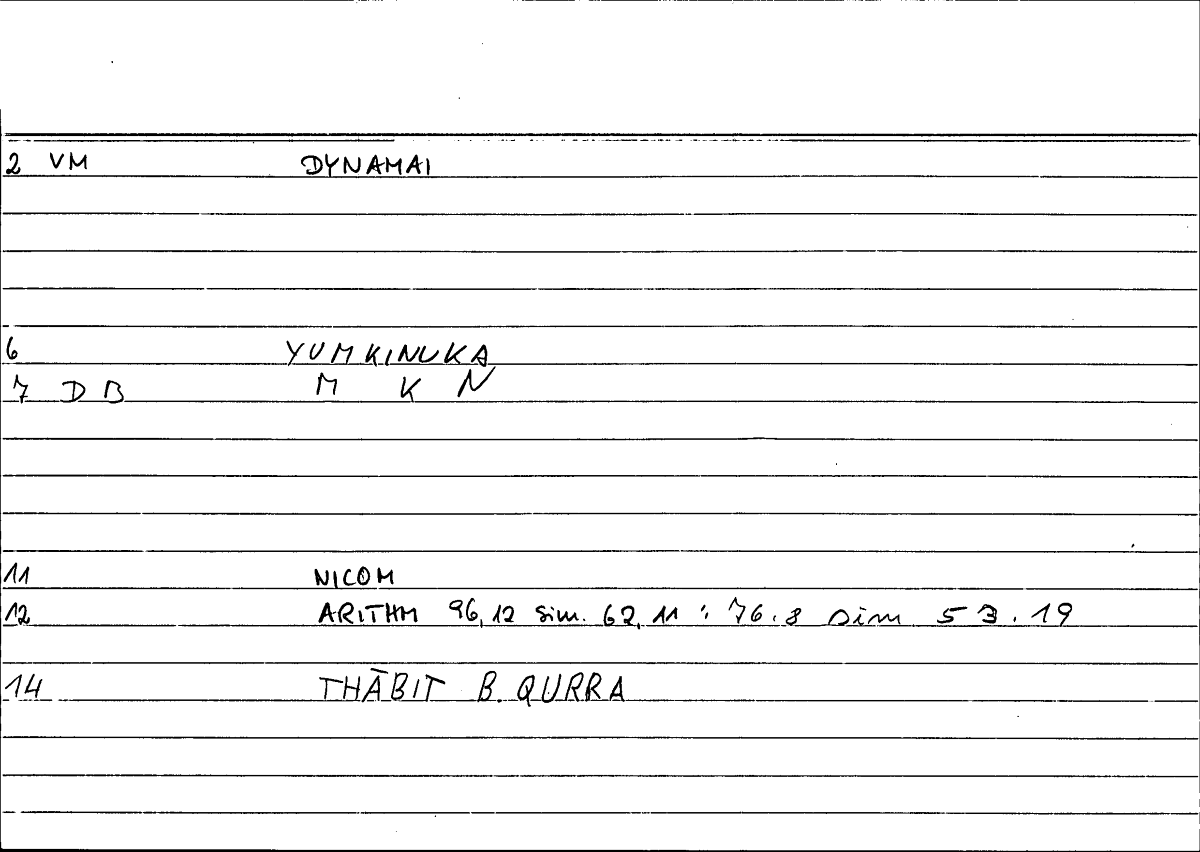 2 VM DYNAMAI
6 YUMKINUKA
7 DB M K N
11 NICOM
12 ARITHM 96,12 sim. 62,11 : 76.8 sim 53.19
14 THĀBIT B. QURRA